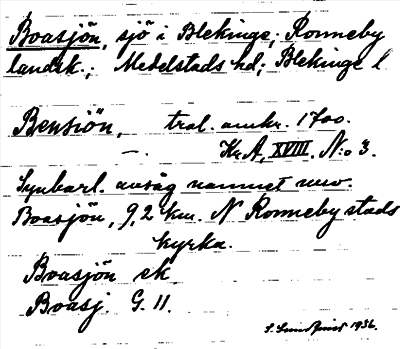 Boasjön, sjö i Blekinge, Ronneby
landsk.; Medelstads hd; Blekinge l
Bensiön, tral. omkr. 1700.
— Kr.A, XVIII, N:o 3.
Synbarl. avsåg namnet nuv.
Boasjön, 9,2 km. N Ronneby stads
kyrka.
Boasjön ek
Boasj. G. 11.
1936.